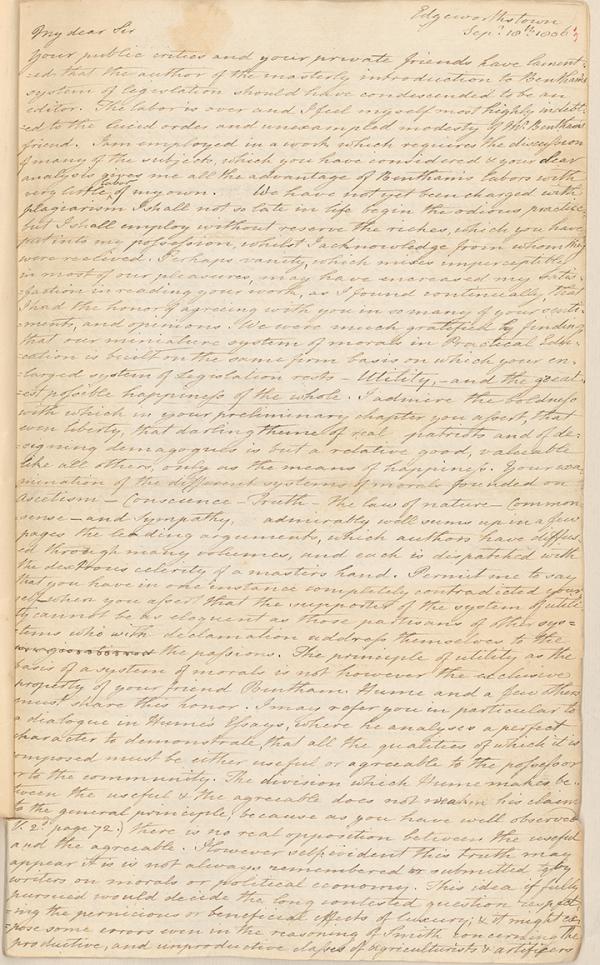 Edgeworthstown
Sepr 18th 1806
My dear Sir
Your public critics and your private friends have lament-
-ed that the author of the masterly introduction to Benthams
system of legislation should have condescended to be an
editor. The labor is over and I feel myself most highly indebt-
-ed to the lucid order and unexampled modesty of Mr. Benthams
friend. I am employed in a work which requires the discussion
of many of the subjects, which you have considered & your clear
analysis gives me all the advantage of Benthams labors with
very little labor of my own. We have not yet been charged with
plagiarism I shall not so late in life begin the odious practice
but I shall employ without reserve the riches, which you have
put into my possession, whilst I acknowledge from whom they
were received. Perhaps vanity, which mixes imperceptibly
in most of our pleasures, may have increased my satis-
-faction in reading your work, as I found continually, that
I had the honor of agreeing with you in so many of your senti-
-ments, and opinions. We were much gratified by finding
that our miniature system of morals in Practical Edu-
-cation is built on the same firm basis on which your en-
-larged system of Legislation rests – Utility, – and the great-
-est possible happiness of the whole. I admire the boldness
with which in your preliminary chapter you assert, that
even liberty, that darling theme of real patriots and of de-
-signing demagogues is but a relative good, valuable
like all others, only as the means of happiness. Your exa-
-mination of the different systems of morals founded on
ascetism – Conscience – Truth – the law of nature – Common
sense – and Sympathy, admirably well sums up in a few
pages the leading arguments, which authors have diffus-
-ed through many volumes, and each is dispatched with
the dextrous celerity of a masters hand. Permit me to say
that you have in one instance completely contradicted your
self when you assert that the supporters of the system of utili-
ty cannot be as eloquent as those partisans of other sys=
tems who with declamation address themselves to the
the passions. The principle of utility as the
basis of a system of morals is not however the exclusive
property of your friend Bentham. Hume and a few others
must share this honor. I may refer you in particular to
a dialogue in Hume's Essays, where he analyses a perfect
character to demonstrate, that all the qualities of which it is
composed must be either useful or agreeable to the possessor
or to the community. The division which Hume makes be-
tween the useful & the agreeable does not weaken his claim
to the general principle, because as you have well observed
V. 2d page 72.) there is no real opposition between the useful
and the agreeable. However self evident this truth may
appear it is is not always remembered or submitted to by
writers on morals or political economy. This idea if fully
pursued would decide the long contested question respect-
-ing the pernicious or beneficial effects of luxury; & it might ex-
pose some errors even in the reasoning of Smith concerning the
productive, and unproductive classes of agriculturists & artificers